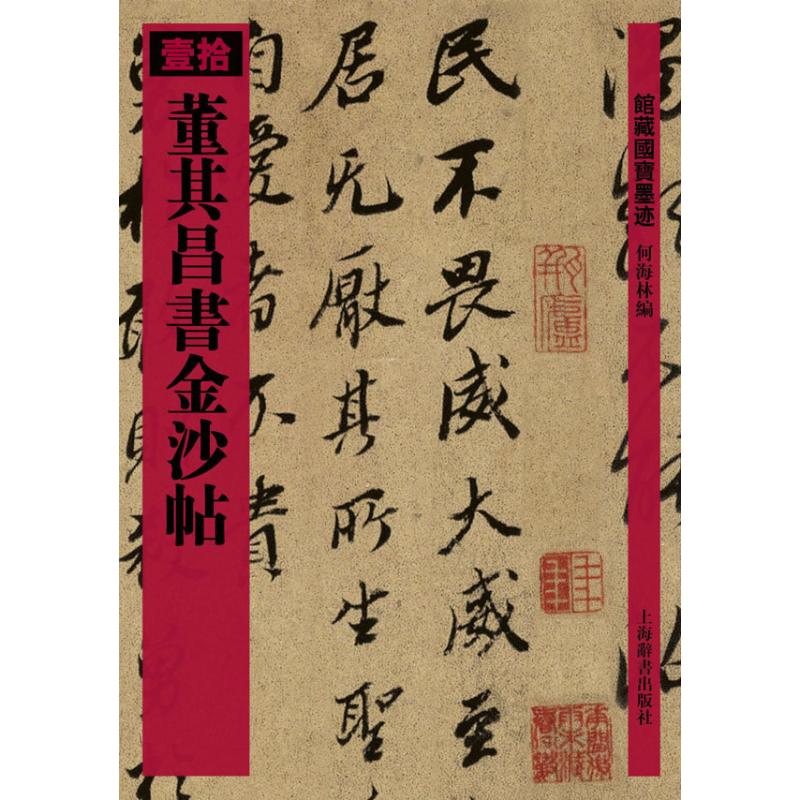 壹拾
董其昌書金沙帖
館藏國寶墨迹
何海林編
上海辭書出版社
民不畏威大威至
居无厭其所生聖
自愛者不責